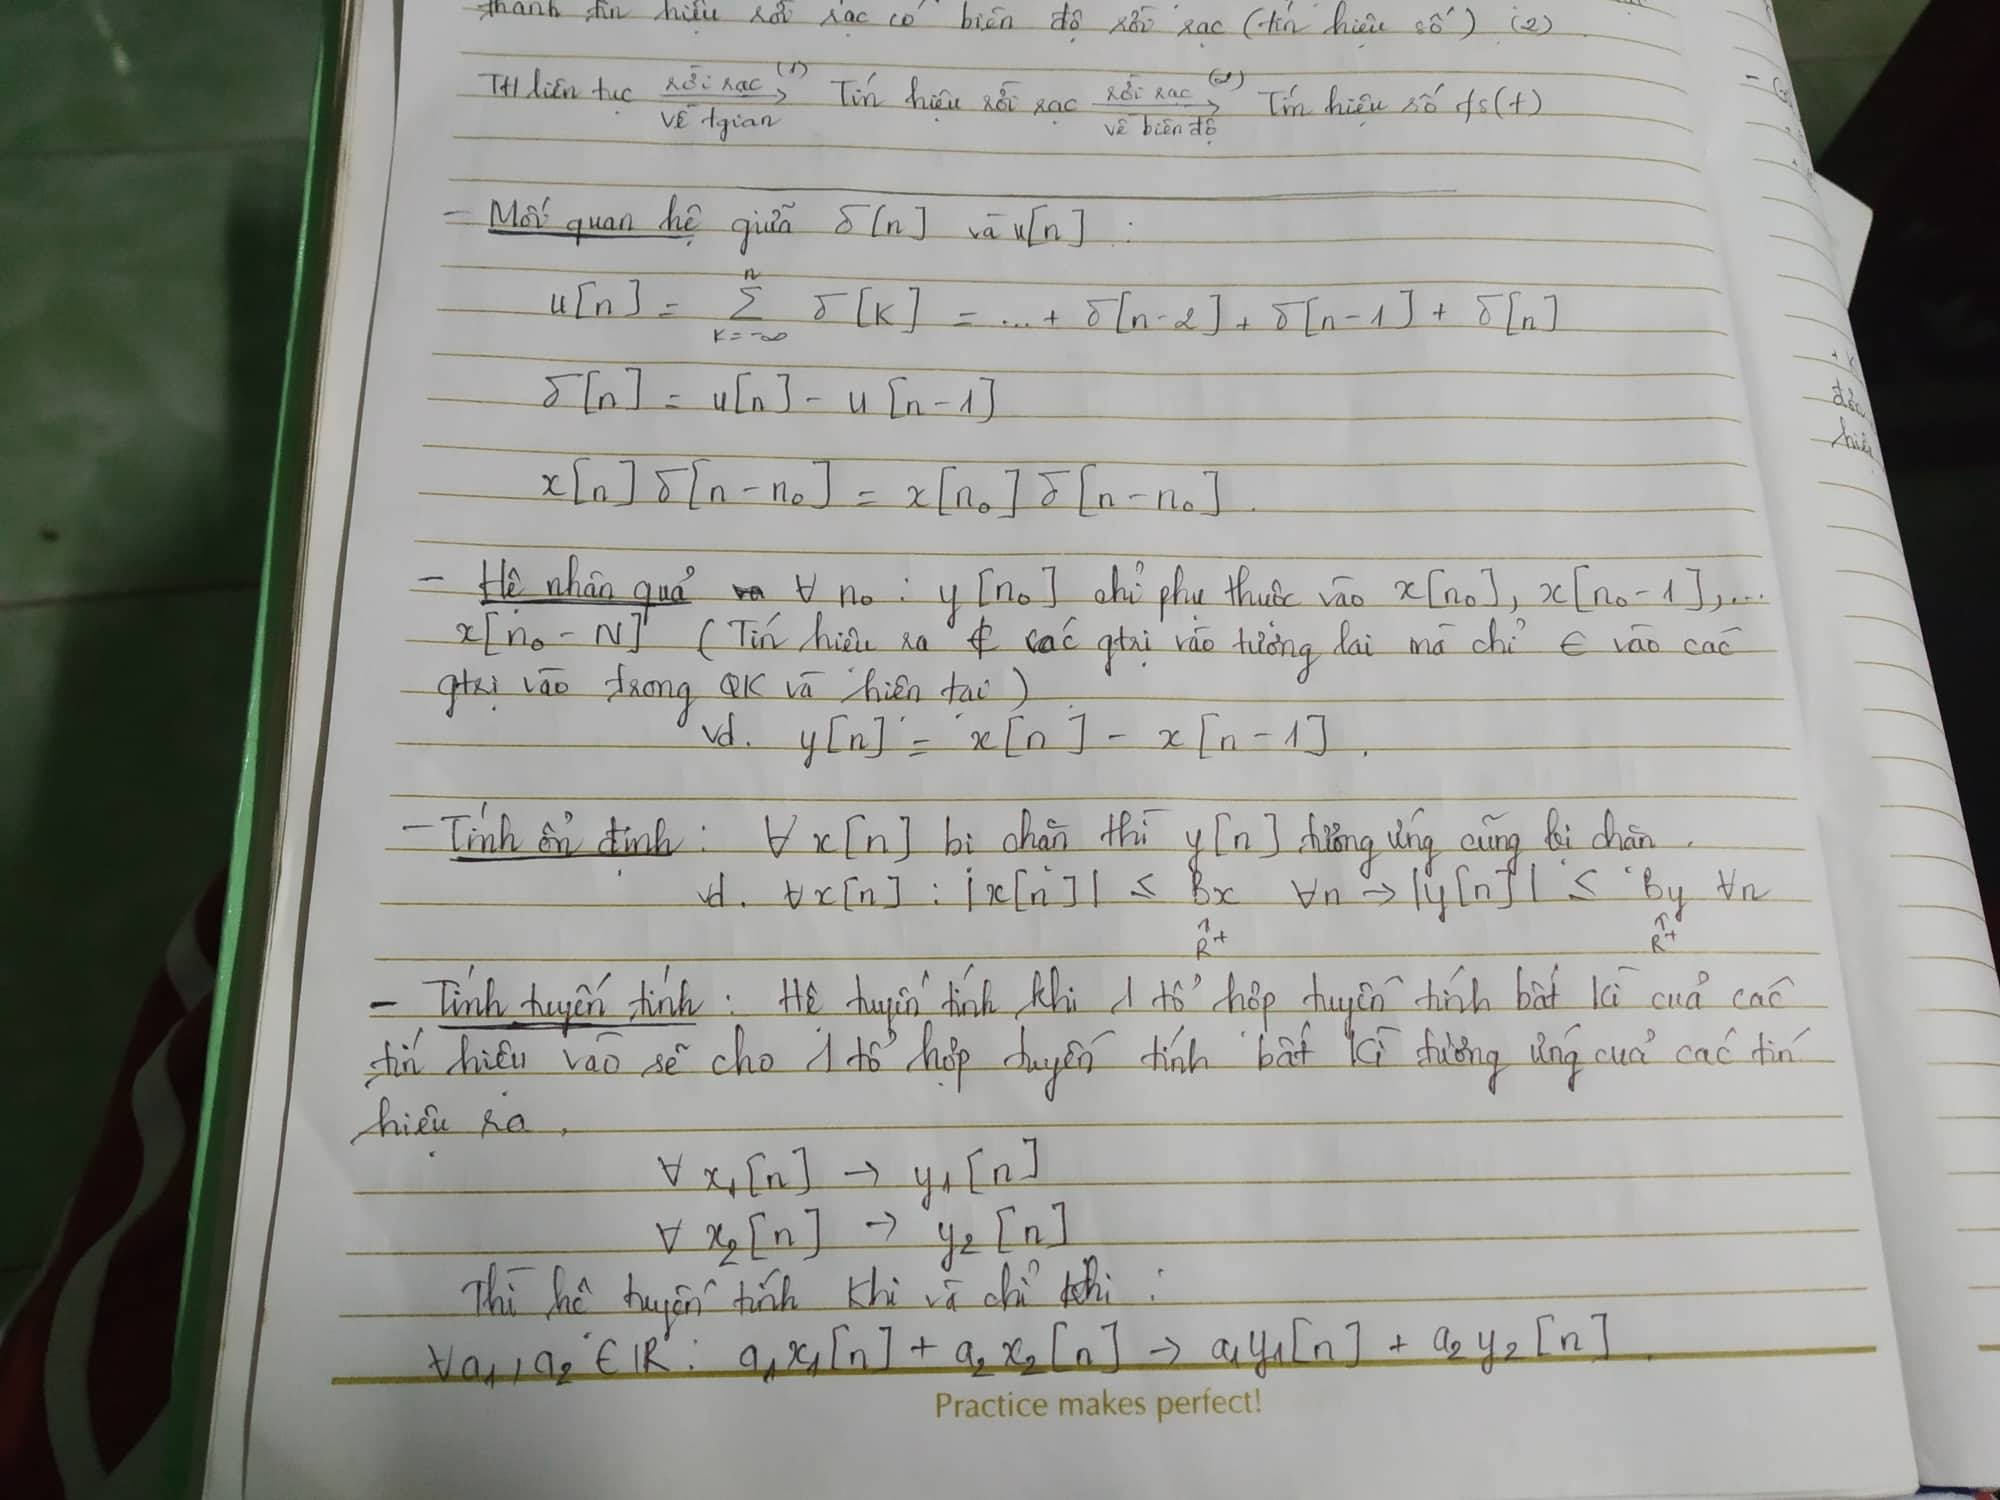 thành tín hiệu rời rạc có biên độ rời rạc (tín hiệu số) (2)
TH liên tục rời rạc (1) về tgian → Tín hiệu rời rạc rời rạc (2) về biên độ → Tín hiệu số fs(t)
- Mối quan hệ giữa δ[n] và u[n] :
u[n] = Σ_{k=-∞}^{n} δ[k] = ... + δ[n-2] + δ[n-1] + δ[n]
δ[n] = u[n] - u[n-1]
x[n] δ[n-n₀] = x[n₀] δ[n-n₀].
- Hệ nhân quả ∀ n₀ : y[n₀] chỉ phụ thuộc vào x[n₀], x[n₀-1],...
x[n₀-N] (Tín hiệu ra ∉ các gtrị vào tương lai mà chỉ ∈ vào các
gtrị vào trong QK và hiện tại)
vd. y[n] = x[n] - x[n-1].
- Tính ổn định : ∀ x[n] bị chặn thì y[n] tương ứng cũng bị chặn.
vd. ∀x[n] : |x[n]| ≤ Bx ∀n → |y[n]| ≤ By ∀n
↑ ↑
R⁺ R⁺
- Tính tuyến tính : Hệ tuyến tính khi 1 tổ hợp tuyến tính bất kì của các
tín hiệu vào sẽ cho 1 tổ hợp tuyến tính bất kì tương ứng của các tín
hiệu ra.
∀ x₁[n] → y₁[n]
∀ x₂[n] → y₂[n]
Thì hệ tuyến tính khi và chỉ khi :
∀a₁, a₂ ∈ R : a₁x₁[n] + a₂ x₂[n] → a₁y₁[n] + a₂ y₂[n].
Practice makes perfect!
đầu
hiệu